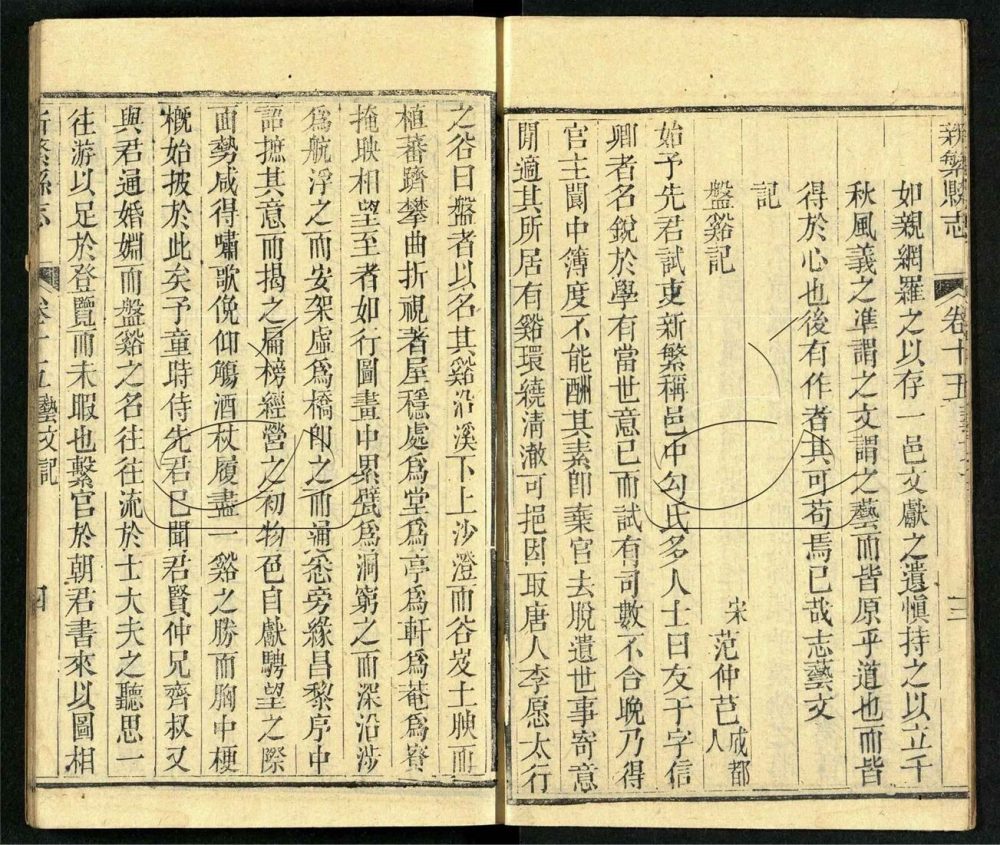 新繁縣志
卷十五
三
如親網羅之以存一邑文獻之遺慎持之以立千
秋風義之準謂之文謂之藝而皆原乎道也而皆
得於心也後有作者其可苟焉已哉志藝文
記
盤谿記
宋范仲芑成都人
始予先君試吏新繁稱邑中勾氏多人士曰友于字信
卿者名銳於學有當世意已而試有司數不合晚乃得
官主閬中簿度不能酬其素卽棄官去脫遺世事寄意
閒適其所居有谿環繞淸澈可挹因取唐人李愿太行
之谷曰盤者以名其谿沿溪下上沙澄而谷岌土腴而
植蕃躋攀曲折視者屋穩處爲堂爲亭爲軒爲菴爲寮
掩映相望至者如行圖畫中累甓爲洞窮之而深沿涉
爲航浮之而安架虛爲橋卽之而通悉旁緣昌黎序中
語摭其意而揭之扁榜經營之初物色自獻騁望之際
面勢咸得嘯歌俛仰觴酒杖履盡一谿之勝而胸中梗
槪始披於此矣予童時侍先君已聞君賢仲兄齊叔又
與君通婚婣而盤谿之名往往流於士大夫之聽思一
往游以足於登覽而未暇也繫官於朝君書來以圖相
新繁縣志
卷十五 藝文記
四